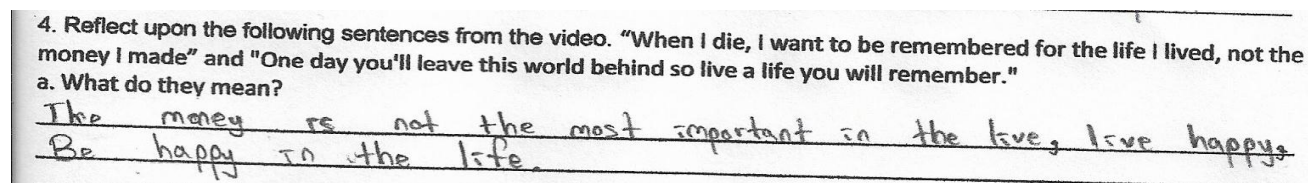 4. Reflect upon the following sentences from the video. “When I die, I want to be remembered for the life I lived, not the
money I made” and "One day you'll leave this world behind so live a life you will remember."
a. What do they mean?
The money is not the most important in the live, live happy,
Be happy in the life.